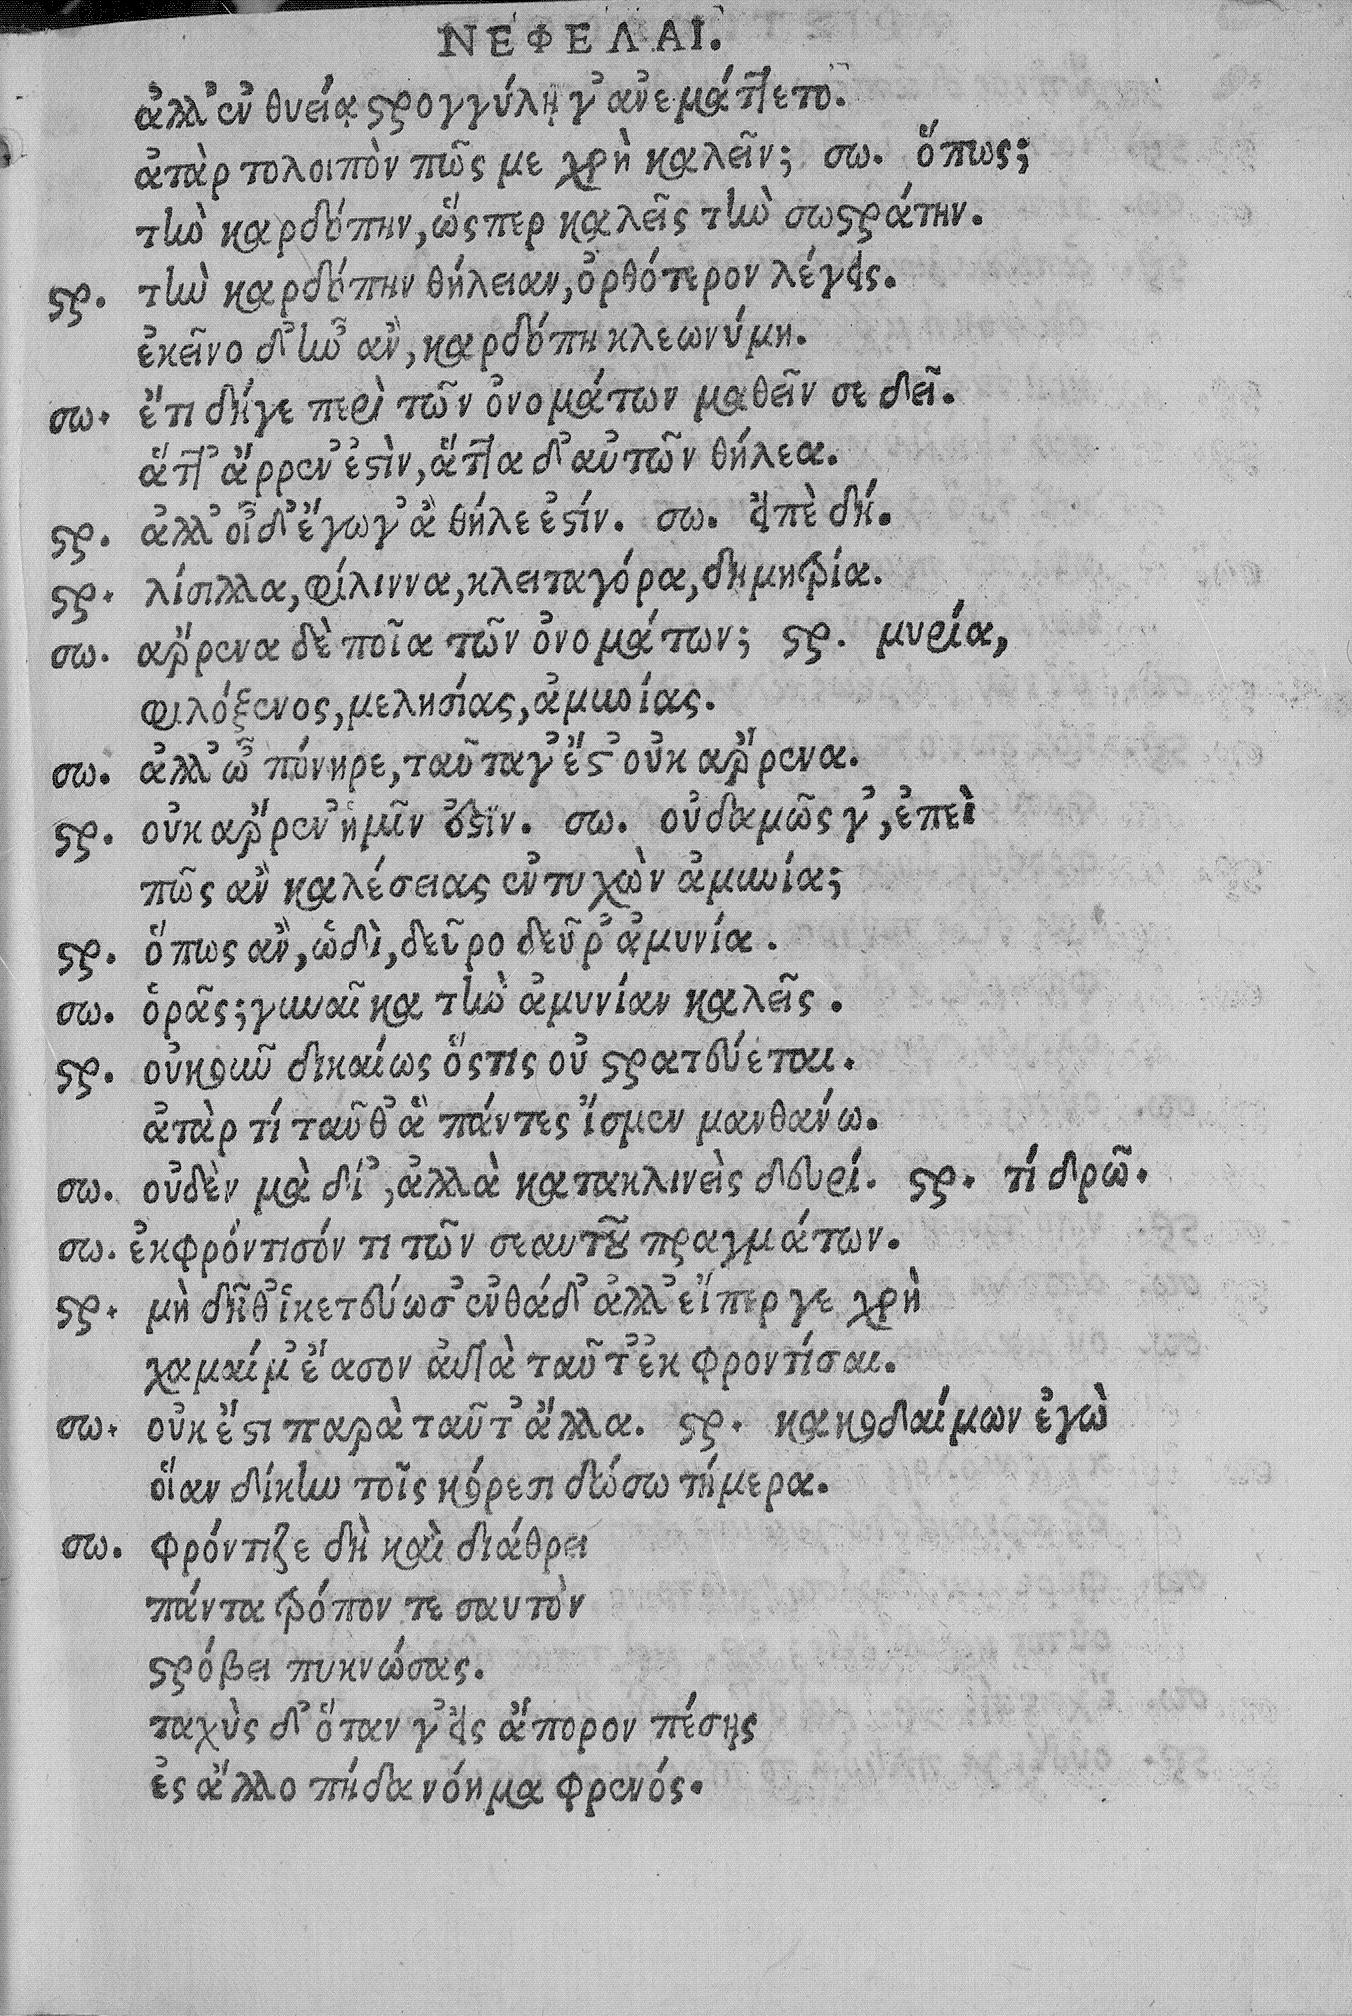 ΝΕΦΕΛΑΙ.
ἀλλ' ἐν θυείᾳ στρογγύλῃ γ' ἀνεμάττετο.
ἀτὰρ τολοιπὸν πῶς με χρὴ καλεῖν; σω. ὅπως;
τὴν καρδόπην, ὥσπερ καλεῖς τὴν σωστράτην.
στρ. τὴν καρδόπην θήλειαν, ὀρθότερον λέγεις.
ἐκεῖνο δ' ἦν ἂν, καρδόπη κλεωνύμη.
σω. ἔτι δήγε περὶ τῶν ὀνομάτων μαθεῖν σε δεῖ.
ἅττ' ἄρρεν' ἐστὶν, ἅττα δ' αὐτῶν θήλεα.
στρ. ἀλλ' οἶδ' ἔγωγ' ἃ θήλε' ἐστίν. σω. εἰπὲ δή.
στρ. λύσιλλα, φίλιννα, κλειταγόρα, δημητρία.
σω. ἄρρενα δὲ ποῖα τῶν ὀνομάτων; στρ. μυρία,
φιλόξενος, μελησίας, ἀμυνίας.
σω. ἀλλ' ὦ πόνηρε, ταῦτα γ' ἔστ' οὐκ ἄρρενα.
στρ. οὐκ ἄρρεν' ἡμῖν ἐστιν. σω. οὐδαμῶς γ', ἐπεὶ
πῶς ἂν καλέσειας ἐντυχὼν ἀμυνίᾳ;
στρ. ὅπως ἂν, ὡδὶ, δεῦρο δεῦρ' ἀμυνία.
σω. ὁρᾷς; γυναῖκα τὴν ἀμυνίαν καλεῖς.
στρ. οὐκουῦ δικαίως ὅστις οὐ στρατεύεται.
ἀτὰρ τί ταῦθ' ἃ πάντες ἴσμεν μανθάνω.
σω. οὐδὲν μὰ δί', ἀλλὰ κατακλινεὶς δευρί. στρ. τί δρῶ.
σω. ἐκφρόντισόν τι τῶν σεαυτοῦ πραγμάτων.
στρ. μὴ δῆθ' ἱκετεύω σ' ἐνθάδ' ἀλλ' εἴπερ γε χρὴ
χαμαί μ' ἔασον αὐτὰ ταῦτ' ἐκφροντίσαι.
σω. οὐκ ἔστι παρὰ ταῦτ' ἄλλα. στρ. κακοδαίμων ἐγὼ
οἵαν δίκην τοῖς κόρεσι δώσω τήμερα.
σω. φρόντιζε δὴ καὶ διάθρει
πάντα τρόπον τε σαυτὸν
στρόβει πυκνώσας.
ταχὺς δ' ὅταν γ' εἰς ἄπορον πέσῃς
ἐς ἄλλο πήδα νόημα φρενός.